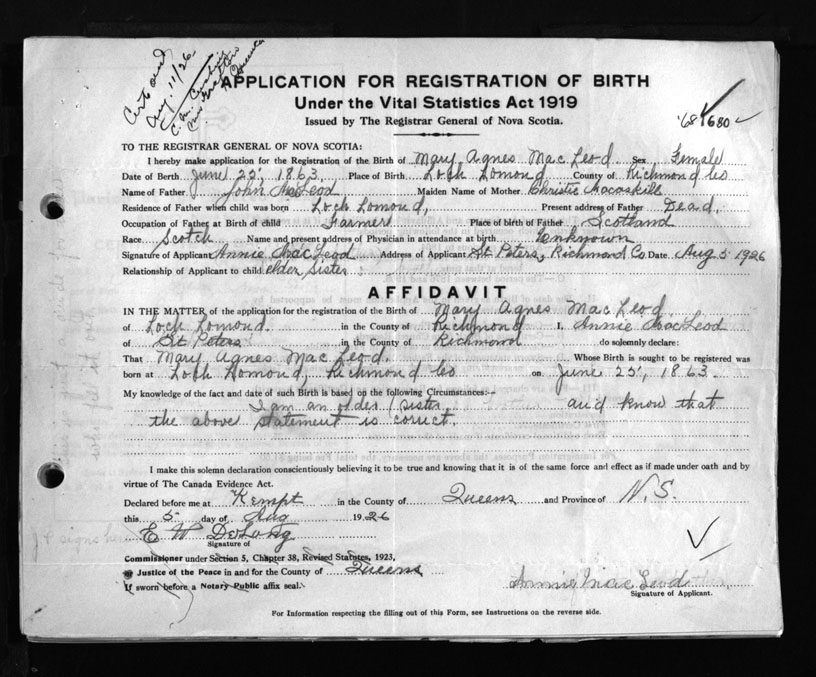 Cert and
Aug 11/26
C. M. Cushing
New Grafton
Queens
APPLICATION FOR REGISTRATION OF BIRTH
Under the Vital Statistics Act 1919
Issued by The Registrar General of Nova Scotia.
TO THE REGISTRAR GENERAL OF NOVA SCOTIA:
I hereby make application for the Registration of the Birth of Mary Agnes Mac Leod Sex Female
Date of Birth June 25, 1863 Place of Birth Loch Lomond County of Richmond Co
Name of Father John MacLeod Maiden Name of Mother Christie Macaskill
Residence of Father when child was born Loch Lomond, Present address of Father Dead,
Occupation of Father at Birth of child Farmer Place of birth of Father Scotland
Race Scotch Name and present address of Physician in attendance at birth Unknown
Signature of Applicant Annie MacLeod Address of Applicant St Peters, Richmond Co. Date Aug 5 1926
Relationship of Applicant to child elder sister
AFFIDAVIT
IN THE MATTER of the application for the registration of the Birth of Mary Agnes Mac Leod
of Loch Lomond. in the County of Richmond I, Annie MacLeod
of St Peters in the County of Richmond do solemnly declare:
That Mary Agnes Mac Leod. Whose Birth is sought to be registered was
born at Loch Lomond, Richmond Co on June 25, 1863.
My knowledge of the fact and date of such Birth is based on the following Circumstances:--
I am an older sister and know that
the above statement is correct.
I make this solemn declaration conscientiously believing it to be true and knowing that it is of the same force and effect as if made under oath and by
virtue of The Canada Evidence Act.
Declared before me at Kempt in the County of Queens and Province of N.S.
this 5 day of Aug 1926
E W DeLong
Signature of
Commissioner under Section 5, Chapter 38, Revised Statutes, 1923,
or Justice of the Peace in and for the County of Queens
If sworn before a Notary Public affix seal.
Annie MacLeod
Signature of Applicant.
For Information respecting the filling out of this Form, see Instructions on the reverse side.